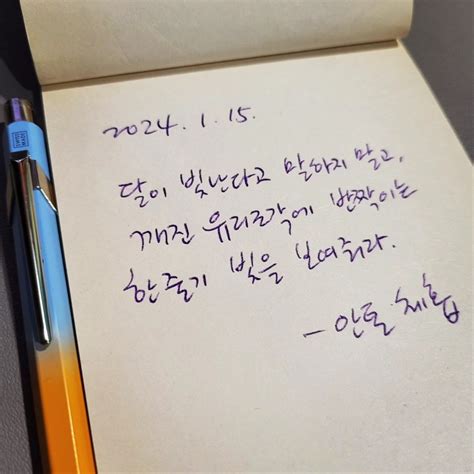 2024. 1. 15.
달이 빛난다고 말하지 말고,
깨진 유리조각에 반짝이는
한줄기 빛을 보여줘라.
- 안톤 체홉